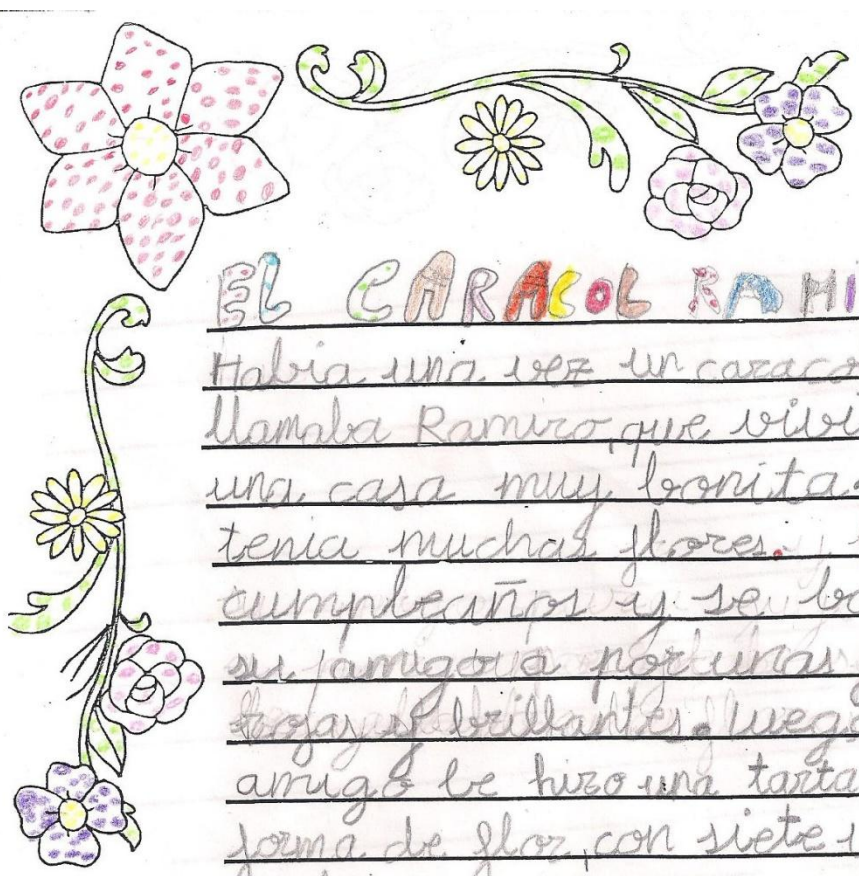 EL CARACOL RAMI
Habia una vez un caraco
llamaba Ramiro, que vivi
una casa muy bonita.
tenia muchas flores.
cumpleaños y se
su amigo a por unas
rojas y brillantes. Luego
amigo le hizo una tarta
forma de flor, con siete